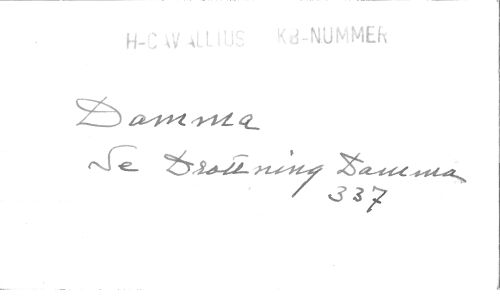 H-CAVALLIUS KB-NUMMER
Damma
Se Drottning Damma
337